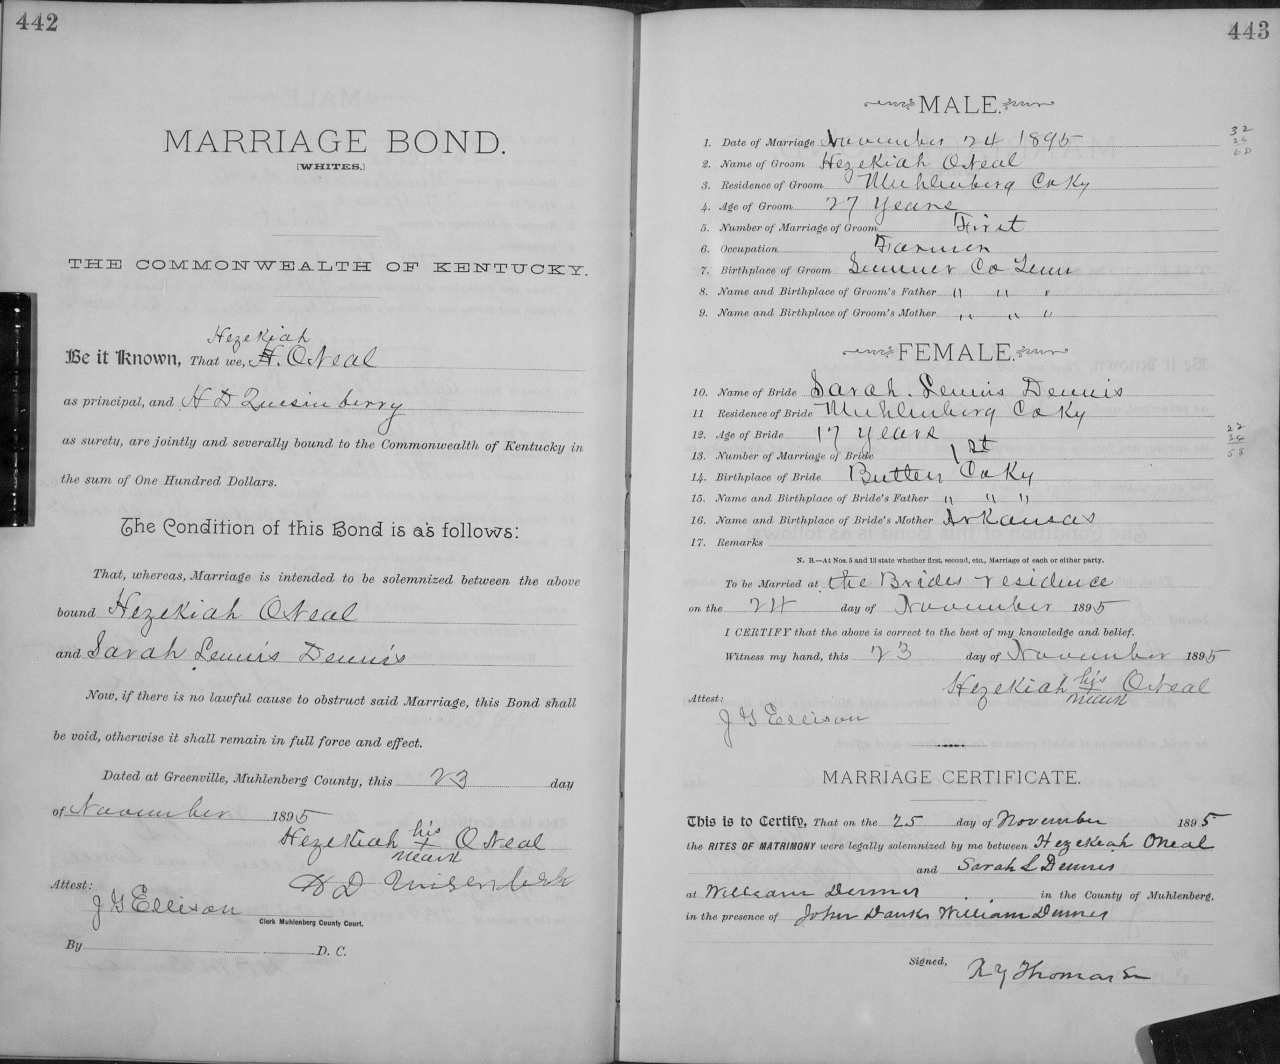 442
MARRIAGE BOND.
[WHITES.]
THE COMMONWEALTH OF KENTUCKY.
Hezekiah
Be it Known, That we, H. ONeal
as principal, and H D Quesinberry
as surety, are jointly and severally bound to the Commonwealth of Kentucky in
the sum of One Hundred Dollars.
The Condition of this Bond is as follows:
That, whereas, Marriage is intended to be solemnized between the above
bound Hezekiah ONeal
and Sarah Lewis Dennis
Now, if there is no lawful cause to obstruct said Marriage, this Bond shall
be void, otherwise it shall remain in full force and effect.
Dated at Greenville, Muhlenberg County, this 23 day
of November 1895
Hezekiah his x mark ONeal
H D
Attest:
J G Ellison
Clerk Muhlenberg County Court.
By D. C.
443
MALE.
1. Date of Marriage November 24 1895
2. Name of Groom Hezekiah ONeal
3. Residence of Groom Muhlenberg Co Ky
4. Age of Groom 27 years
5. Number of Marriage of Groom First
6. Occupation Farmer
7. Birthplace of Groom Sumner Co Tenn
8. Name and Birthplace of Groom's Father " " "
9. Name and Birthplace of Groom's Mother " " "
32
26
60
FEMALE.
10. Name of Bride Sarah. Lewis Dennis
11 Residence of Bride Muhlenberg Co Ky
12. Age of Bride 17 years
13. Number of Marriage of Bride 1st
14. Birthplace of Bride Butler Co Ky
15. Name and Birthplace of Bride's Father " " "
16. Name and Birthplace of Bride's Mother Arkansas
17. Remarks
22
36
58
N. B.—At Nos. 5 and 13 state whether first, second, etc., Marriage of each or either party.
To be Married at the Brides residence
on the 24 day of November 1895
I CERTIFY that the above is correct to the best of my knowledge and belief.
Witness my hand, this 23 day of November 1895
Hezekiah his x mark ONeal
Attest:
J G Ellison
MARRIAGE CERTIFICATE.
This is to Certify, That on the 25 day of November 1895
the RITES OF MATRIMONY were legally solemnized by me between Hezekiah Oneal
and Sarah L Dennis
at William Dennis in the County of Muhlenberg,
in the presence of John Danks William Dennis
Signed, Thomas